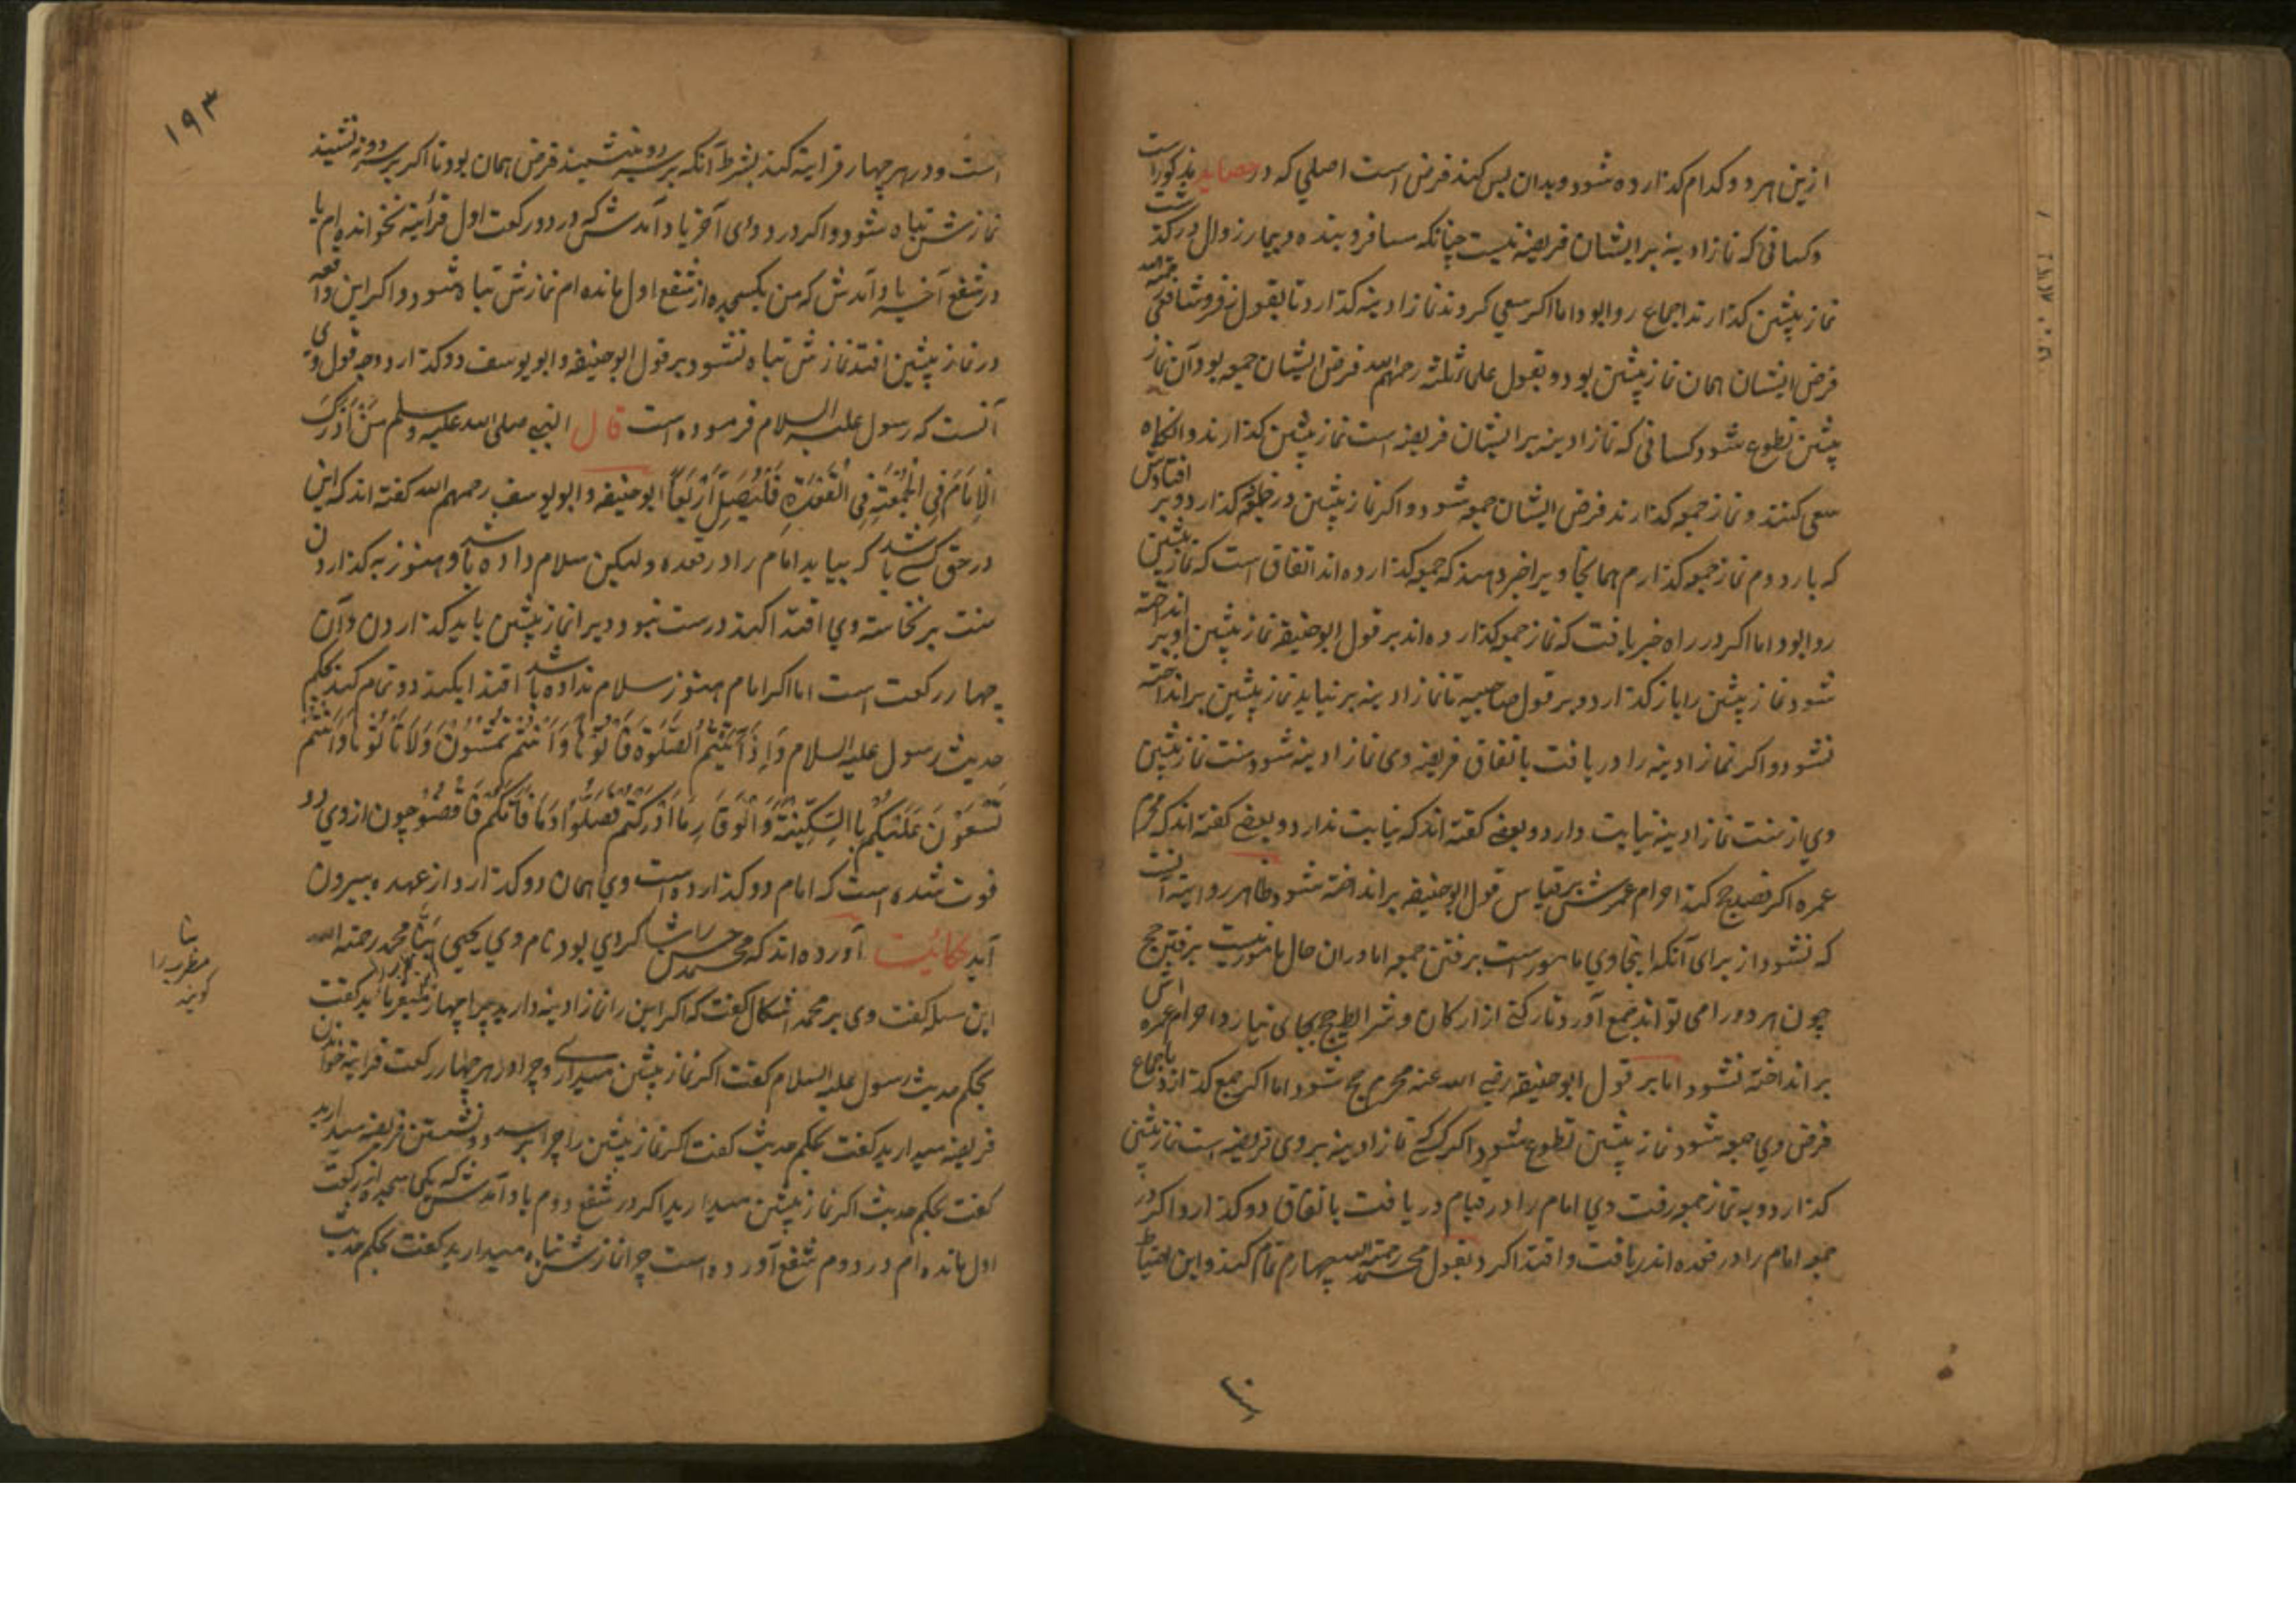 ازین هر دو کدام کذارده شود و بدان بس کند فرض است اصلی که در حصاید مذکور است
و کسانی که نماز ادینه بر ایشان فریضه نیست چنانکه مسافر و بنده و بیمار زوال در کذشت
نماز پیشین کذارند اجماع روا بود اما اکر سعی کروند نماز ادینه کذارد تا بقول زفر و شافعی رحمة الله
فرض ایشان همان نماز پیشین بود و بقول علمای ثلثه رحمهم الله فرض ایشان جمعه بود آن نماز
پیشین تطوع شود و کسانی که نماز ادینه بر ایشان فریضه است نماز پیشین کذارند و آنکاه
سعی کنند و نماز جمعه کذارند فرض ایشان جمعه شود و اکر نماز پیشین در کذارد و بر افتادش
که بار دوم نماز جمعه کذارم همانجا ویرا خبر دهند که جمعه کذارده اند اتفاق است که نماز پیشین
روا بود اما اکر در راه خبر یافت که نماز جمعه کذارده اند بر قول ابوحنیفه نماز پیشین او بر انداخته
شود نماز پیشین را باز کذارد و بر قول صاحبیه تا نماز ادینه بر نیاید نماز پیشین بر انداخته
نشود و اکر نماز ادینه را دریافت باتفاق فریضه وی نماز ادینه شود سنت نماز پیشین
وی از سنت نماز ادینه نیابت دارد و بعضی کفته اند که نیابت ندارد و بعضی کفته اند که محرم
عمره اکر قصد حج کند احرام عمرش بر قیاس قول ابوحنیفه بر انداخته شود و ظاهر روایته آنست
که نشود از برای آنکه اینجا وی مامور است برفتن جمعه اما دران حال مامور نیست برفتن حج
چون هر دو را می تواند جمع آورد تا رکنی از ارکان و شرایط حج بجای نیارد احرام عمره اش
بر انداخته نشود اما بر قول ابوحنیفه رضی الله عنه محرم حج شود اما اکر جمع کذارد باجماع
فرض وی جمعه شود نماز پیشین تطوع شود و اکر کسی که نماز ادینه بر وی فریضه است نماز پیشین
کذارد و به نماز جمعه رفت وی امام را در قیام دریافت باتفاق دو کذارد و اکر در
جمعه امام را در قعده اندریافت و اقتدا کرد بقول محمد رحمة الله چهارم تمام کند و این احتیاط
۱۹۳
است و در هر چهار قراءیته کند بشرط آنکه بر سر دو بنشیند فرض همان بود تا اکر بر سر دو نه نشیند
نمازش تباه شود و اکر در دوی آخر یاد آمدش که در دو رکعت اول قرأیته نخوانده ام یا
در شفع آخر یاد آمدش که من یکسجده از شفع اول مانده ام نمازش تباه شود و اکر این واقعه
در نماز پیشین افتد نمازش تباه نشود بر قول ابوحنیفه و ابویوسف دو کذارد وجه قول وی
آنست که رسول علیه السلام فرموده است قال النبی صلی الله علیه وسلم من ادرک
الامام فی الجمعة فی القعدة فلیصل اربعا ابوحنیفه و ابویوسف رحمهم الله کفته اند که این
در حق کسی باشد که بیاید امام را در قعده ولیکن سلام داده باشد و هنوز به کذاردن
سنت بر نخاسته وی اقتدا کند درست نبود ویرا نماز پیشین باید کذاردن و آن
چهار رکعت است اما اکر امام هنوز سلام نداده باشد اقتدا بکند دو تمام کند بحکم
حدیث رسول علیه السلام واذا اتیتم الصلوة فاتوها وانتم تمشون ولا تاتوها وانتم
تسعون علیکم باالسکینة والوقار ما ادرکتم فصلوا وما فاتکم فاقضو چون از وی دو
فوت شده است که امام دو کذارده است وی همان دو کذارد از عهده بیرون
آید حکایت آورده اند که محمد حسن را شاکردی بود نام وی یحیی محمد رحمة الله
این مسله کفت وی بر محمد اشکال کفت که اکر این را نماز ادینه دارید چرا چهار میفرمایید کفت
بحکم حدیث رسول علیه السلام کفت اکر نماز پیشین میدارید چرا در هر چهار رکعت قرایته خواندن
فریضه میدارید کفت بحکم حدیث کفت اکر نماز پیشین را چرا بر سر دو نشستن فریضه میدارید
کفت بحکم حدیث اکر نماز پیشین میدارید اکر در شفع دوم یاد آمدش که یکی سجده از رکعت
اول مانده ام در دوم شفع آورده است چرا نمازش تباه میدارید کفت بحکم حدیث